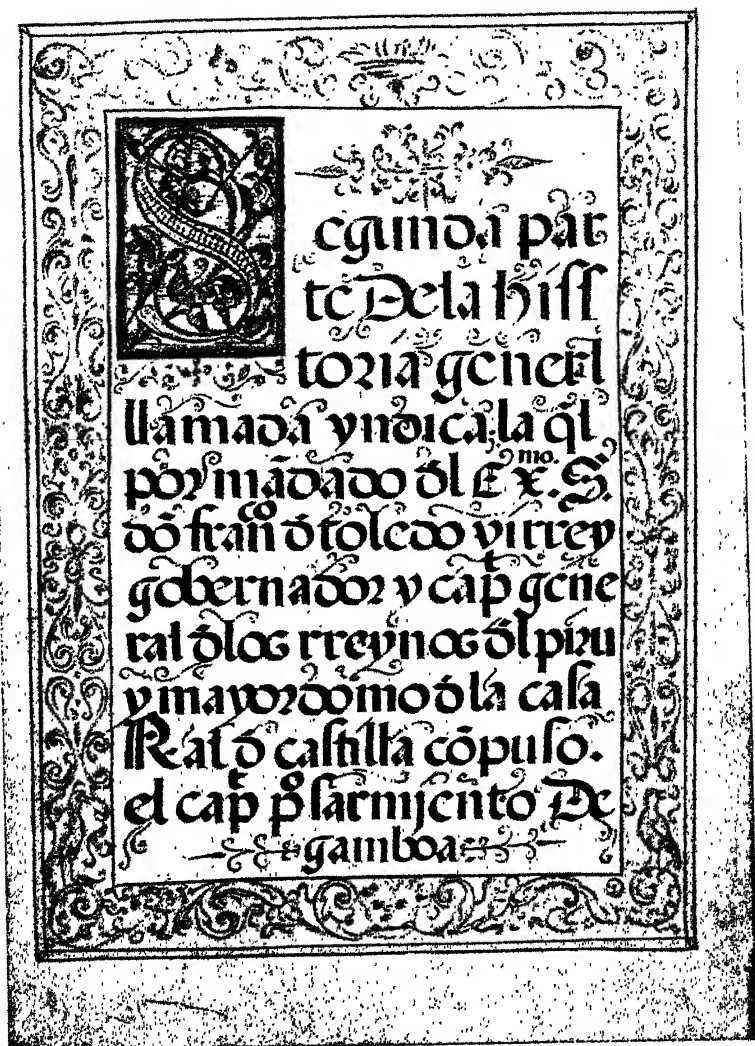 Segunda par
te De la hiss
toria generl
llamada yndica, la ql̃
por mãdado dl Ex.mo S.
dõ franco d toledo virrey
gobernador y capt gene
ral dlos rreynos dl piru
y mayordomo dla casa
Real d castilla cõpuso.
el capt po sarmjento De
gamboa